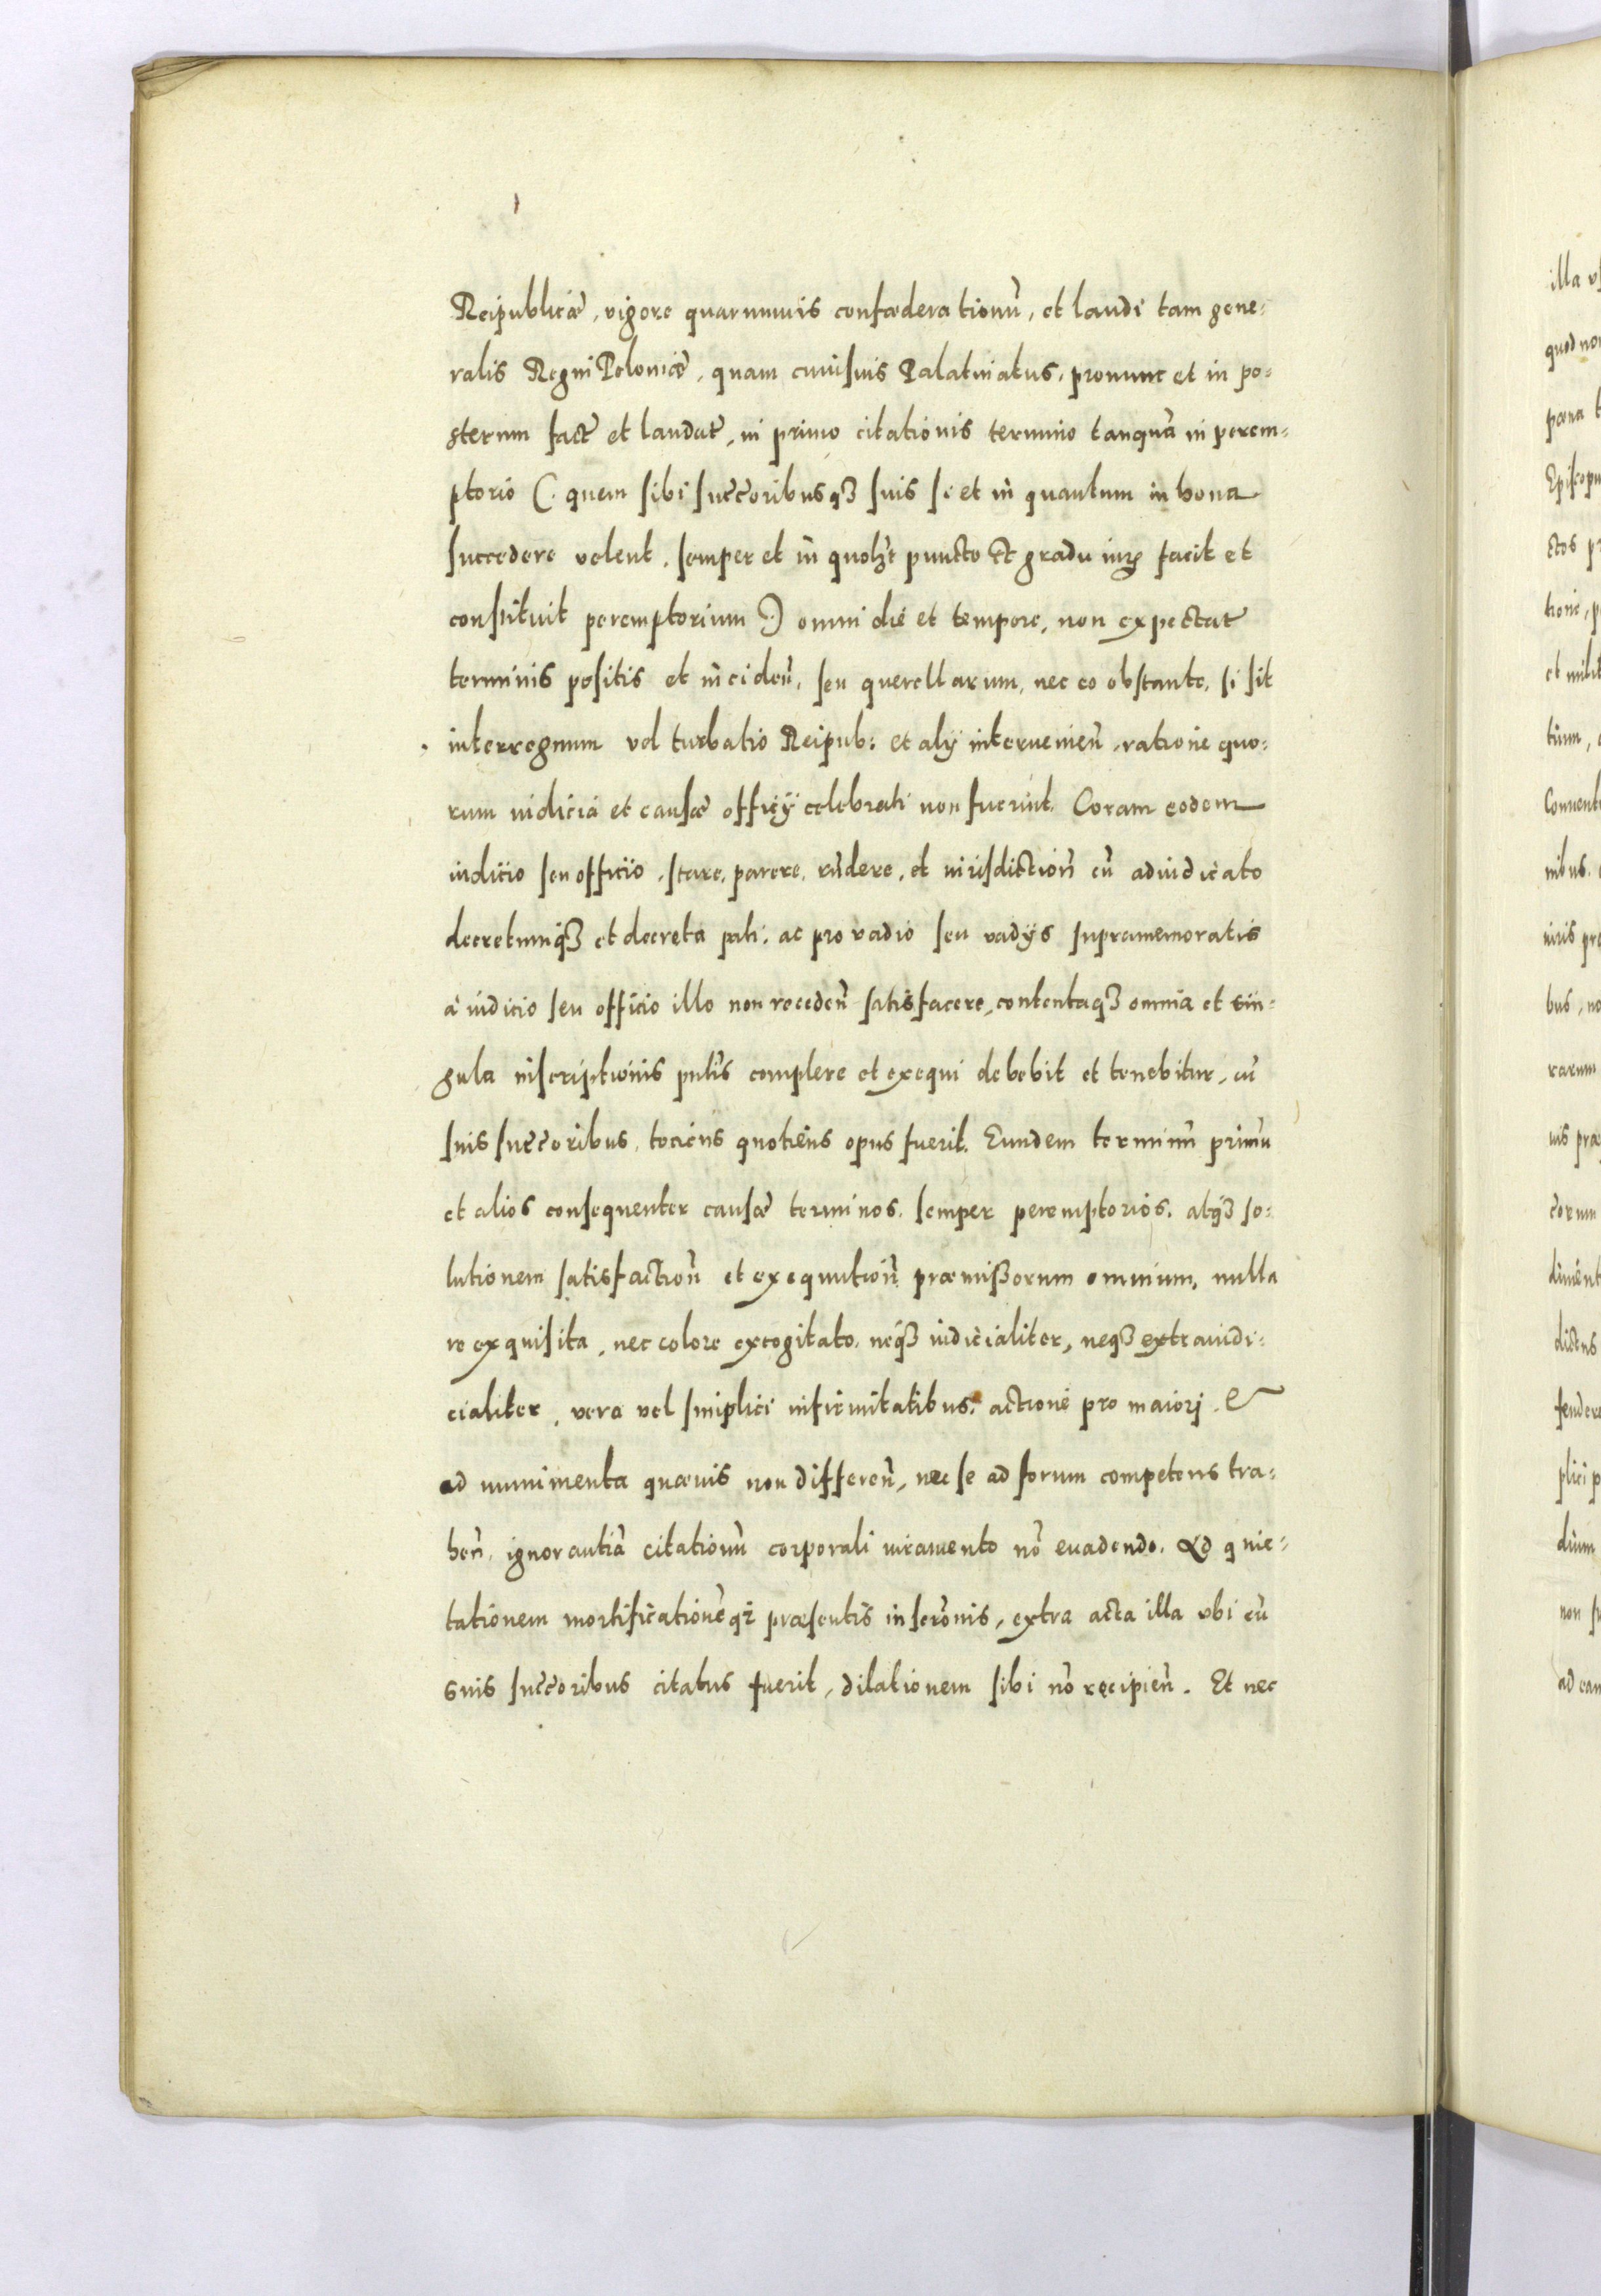 Reipublicæ, vigore quarumuis confœderationū, et laudi tam gene-
ralis Regni Poloniæ, quam cuiusuis Palatinatus, pronunc et in po-
sterum fact̃ et laudat̃, in primo citationis termino tanquā in perem-
ptorio (: quem sibi succ̃oribusqȝ suis si et in quantum in bona
succedere volent, semper et in quolꝫt puncto et gradu iurꝫ facit et
constituit peremptorium :) omni die et tempore, non expectat̃
terminis positis et inciden̄, seu querellarum, nec eo obstante, si sit
interregnum vel turbatio Reipub: et alÿ interuenien̄, ratione quo-
rum iudicia et causæ officÿ celebrati non fuerint. Coram eodem
iudicio seu officio, stare, parere, rñdere, et iurisdiction̄ cū adiudicato
decretumqȝ et decreta pati, ac pro vadio seu vadÿs supramemoratis
à iudicio seu officio illo non receden̄ satisfacere, contentaqȝ omnia et sin-
gula inscriptionis pn̄tis complere et exequi debebit et tenebitur, cū
suis succ̃oribus, tociens quotiens opus fuerit. Eundem terminū primū
et alios consequenter causæ terminos, semper peremptorios, atqȝ so-
lutionem satisfaction̄ et exequution̄ præmissorum omnium, nulla
re exquisita, nec colore excogitato, neqȝ iudicialiter, neqȝ extraiudi-
cialiter, vera vel simplici infirmitatibus, actione pro maiori &
ad munimenta quæuis non differen̄, nec se ad forum competens tra-
hen̄, ignorantiā citationū corporali iuramento nō euadendo. Ad quie-
tationem mortificationēqȝ præsentis inscrōnis, extra acta illa vbi cū
suis succ̃oribus citatus fuerit, dilationem sibi nō recipien̄. Et nec
illa
quod
pœna
Episcop
ctos
et milit
tium,
Conuent
nibus.
bus, no
rarum
c̃orum
diment
dictus
plici p
dium
non